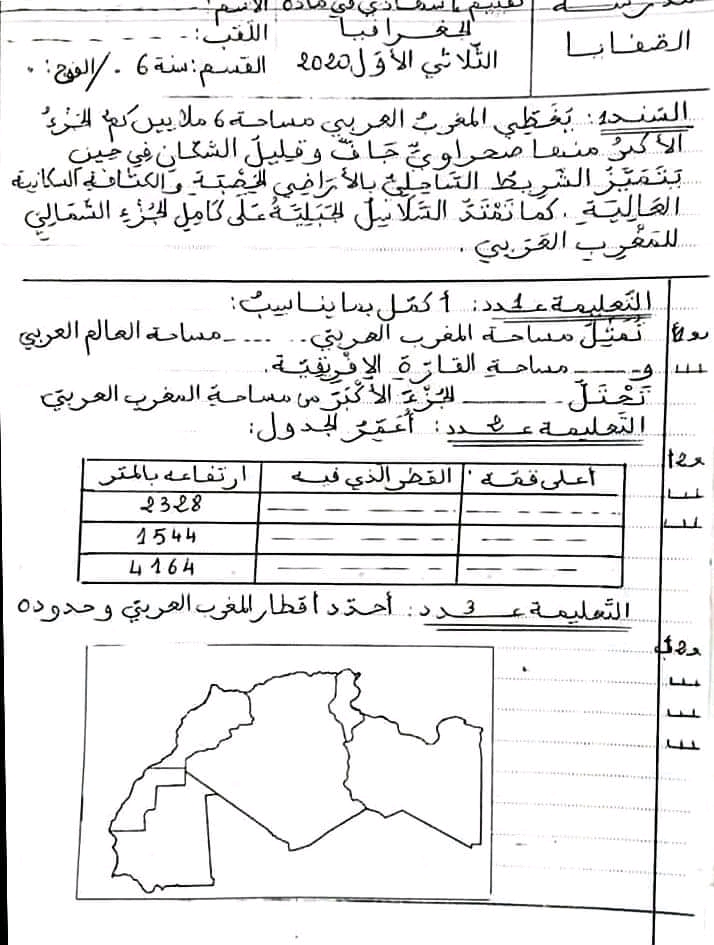 مدرسة
الصفايا
تقييم بإستعادي في مادة
الجغرافيا
الثّلاثي الأوّل 2020
الإسم:
اللّقب: _ _ _ _ _ _
القسم: سنة 6 ./الفوج: .
السّند1: يَغطّي المغربُ العربي مساحة 6 ملايين كم² الجزءُ
الأكبرُ منها صحراويّ جَافّ وقليلُ السّكّان في حين
يَتميّزُ الشّريطُ السّاحليّ بالأراضِي الخصْبَة والكثافةِ السكانية
العَاليَةِ. كما تَمْتَدّ السّلاسِلُ الجبَليّةُ على كامِلِ الجُزْءِ الشّماليّ
للمَغْرِب العَرَبي.
التّعليمة عـ1ـدد: أكمّل بما يناسبُ:
تُمثّلُ مساحة المغرب العربيّ .. .... مساحة العالم العربي
و ــــــ مساحةِ القارّةِ الإفْرِيقيّةِ.
تَحْتَلّ ــــــــ الجُزْءَ الأكْبَرَ من مساحةِ المغرب العربيّ
التّعليمة عـ2ـدد: أعَمّرُ الجدول:
أعلى قمّة | القطر الذي فيه | ارتفاعه بالمتر
_ _ _ _ _ | _ _ _ _ _ | 2328
_ _ _ _ | _ _ _ _ _ | 1544
_ _ _ _ | _ _ _ _ _ | 4164
التّعليمة عـ3ـدد: أحدّد أقطار المغرب العربيّ وحدوده